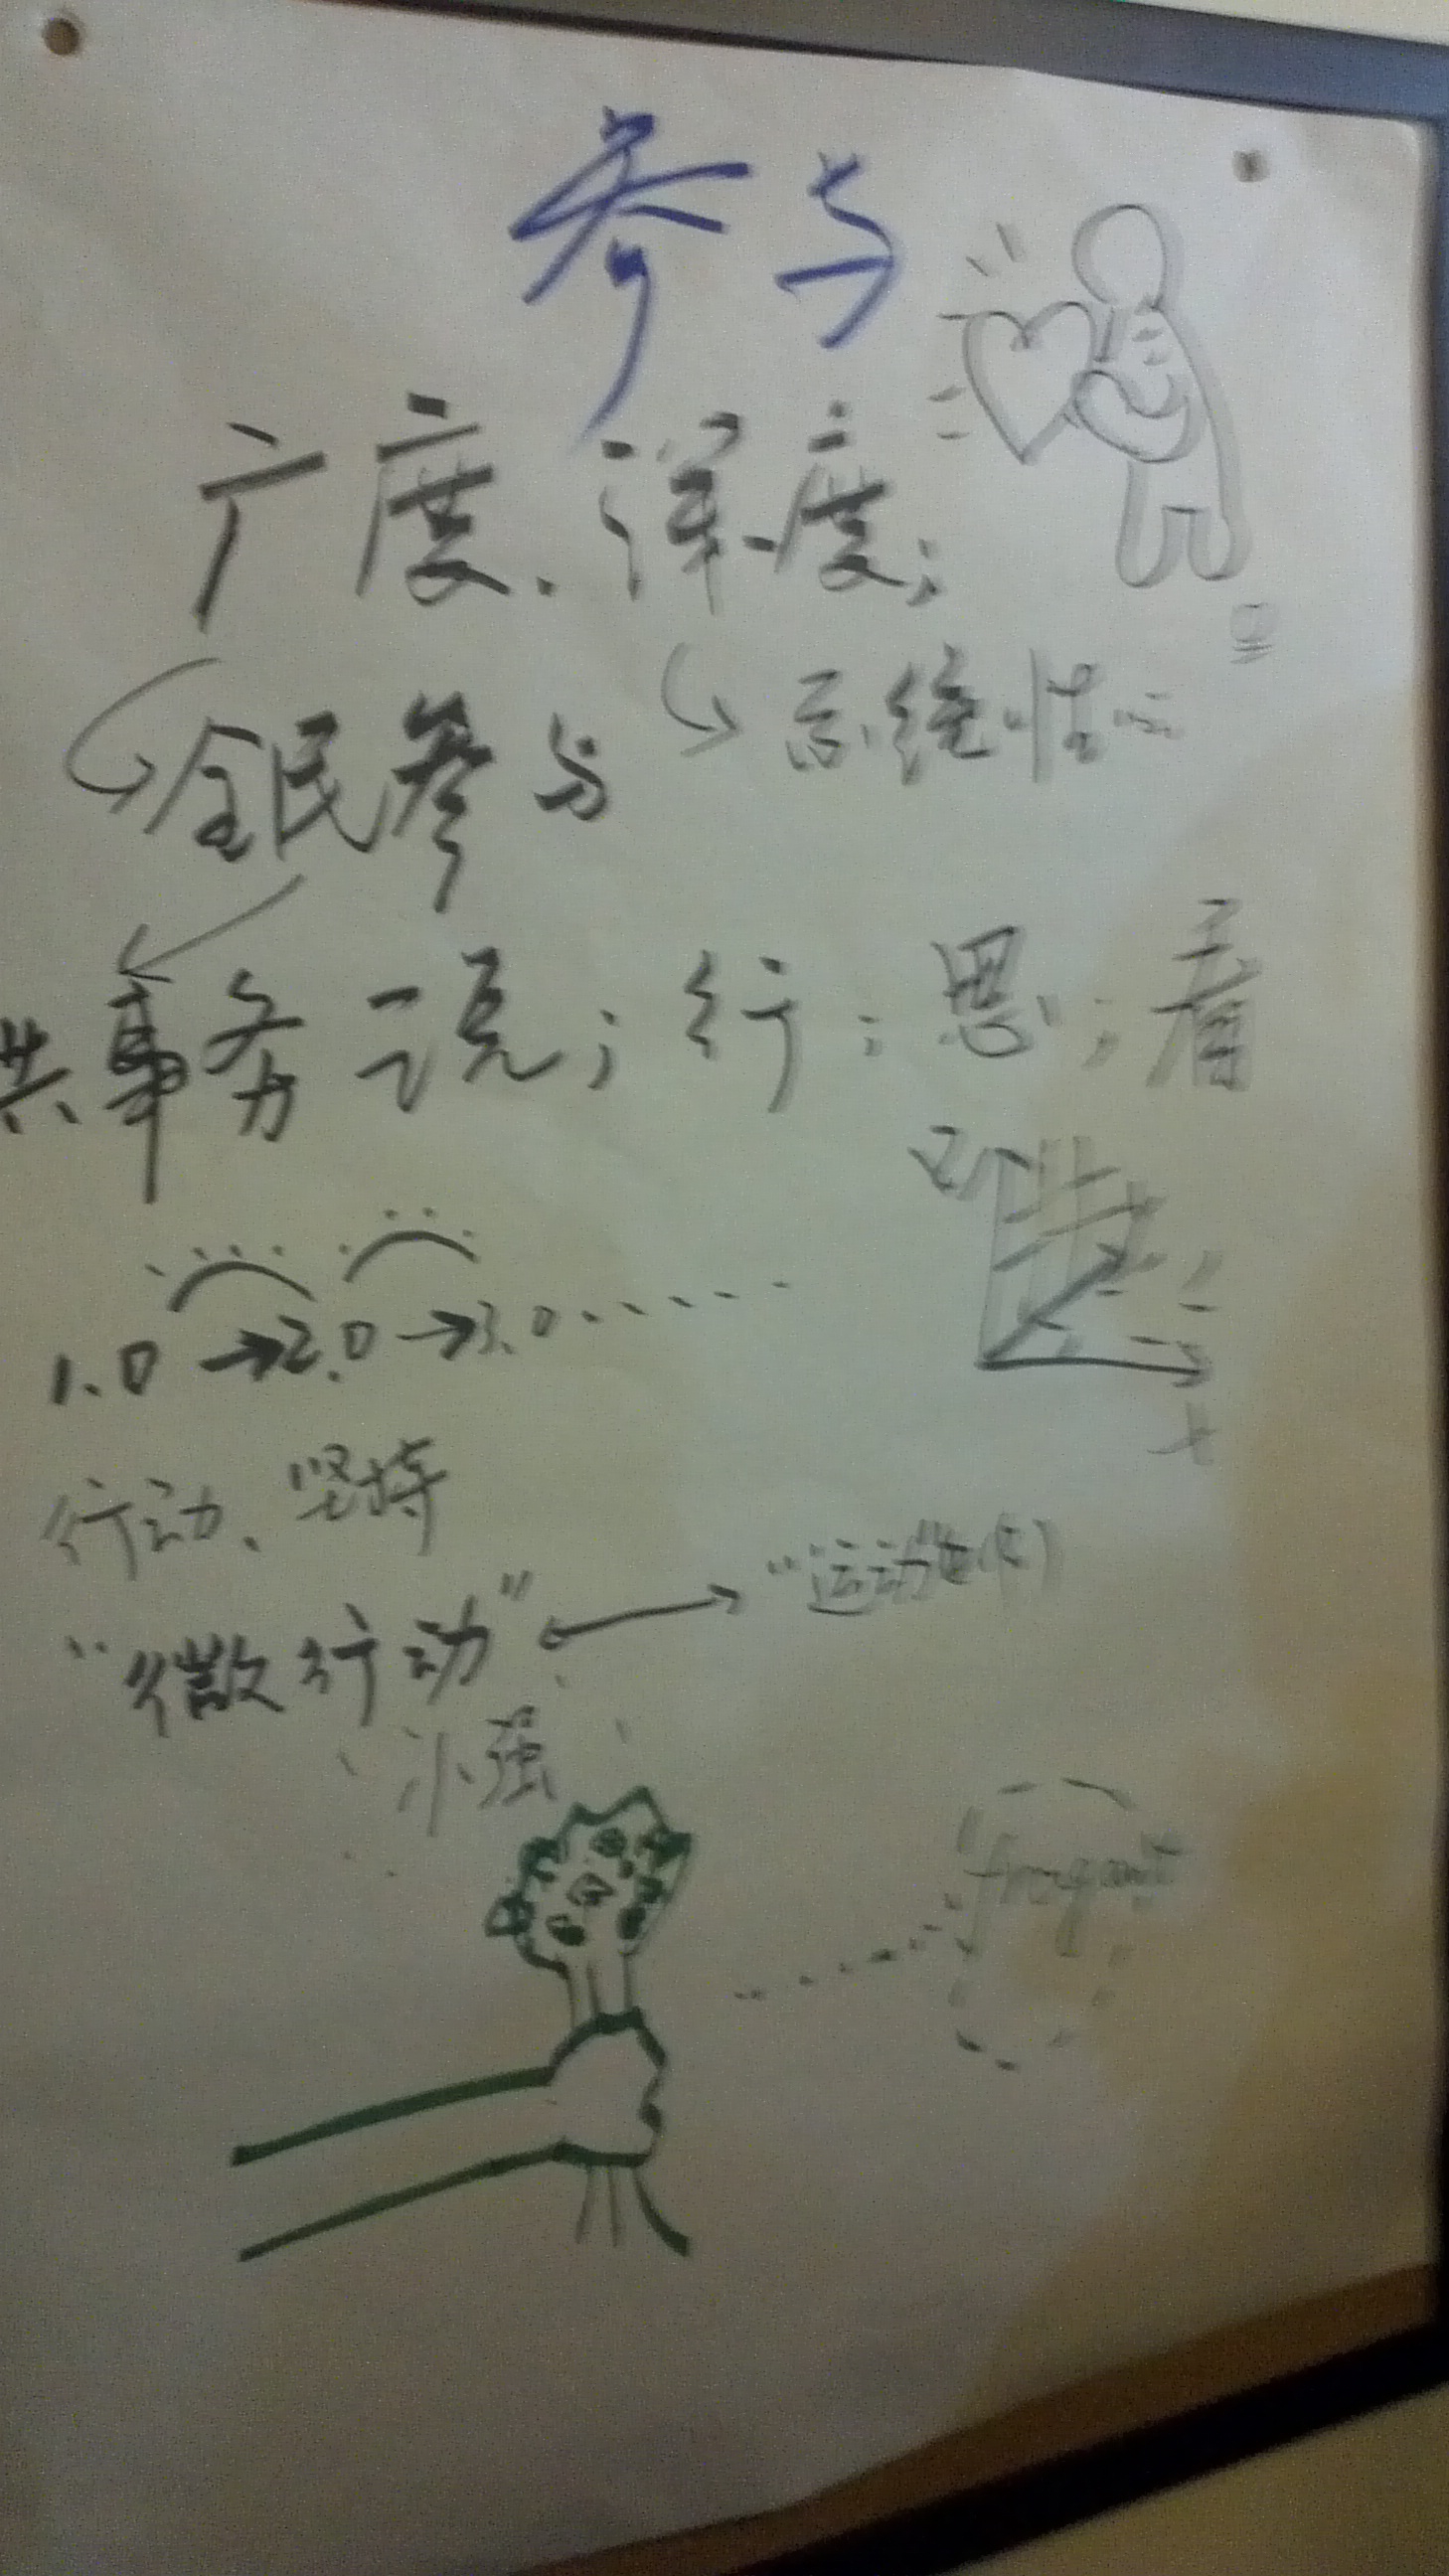 参与
广度、深度；
全民参与
系统性
共事务 说；行；思；看
1.0→2.0→3.0......
行动、坚持
“微行动”
小强
fragant